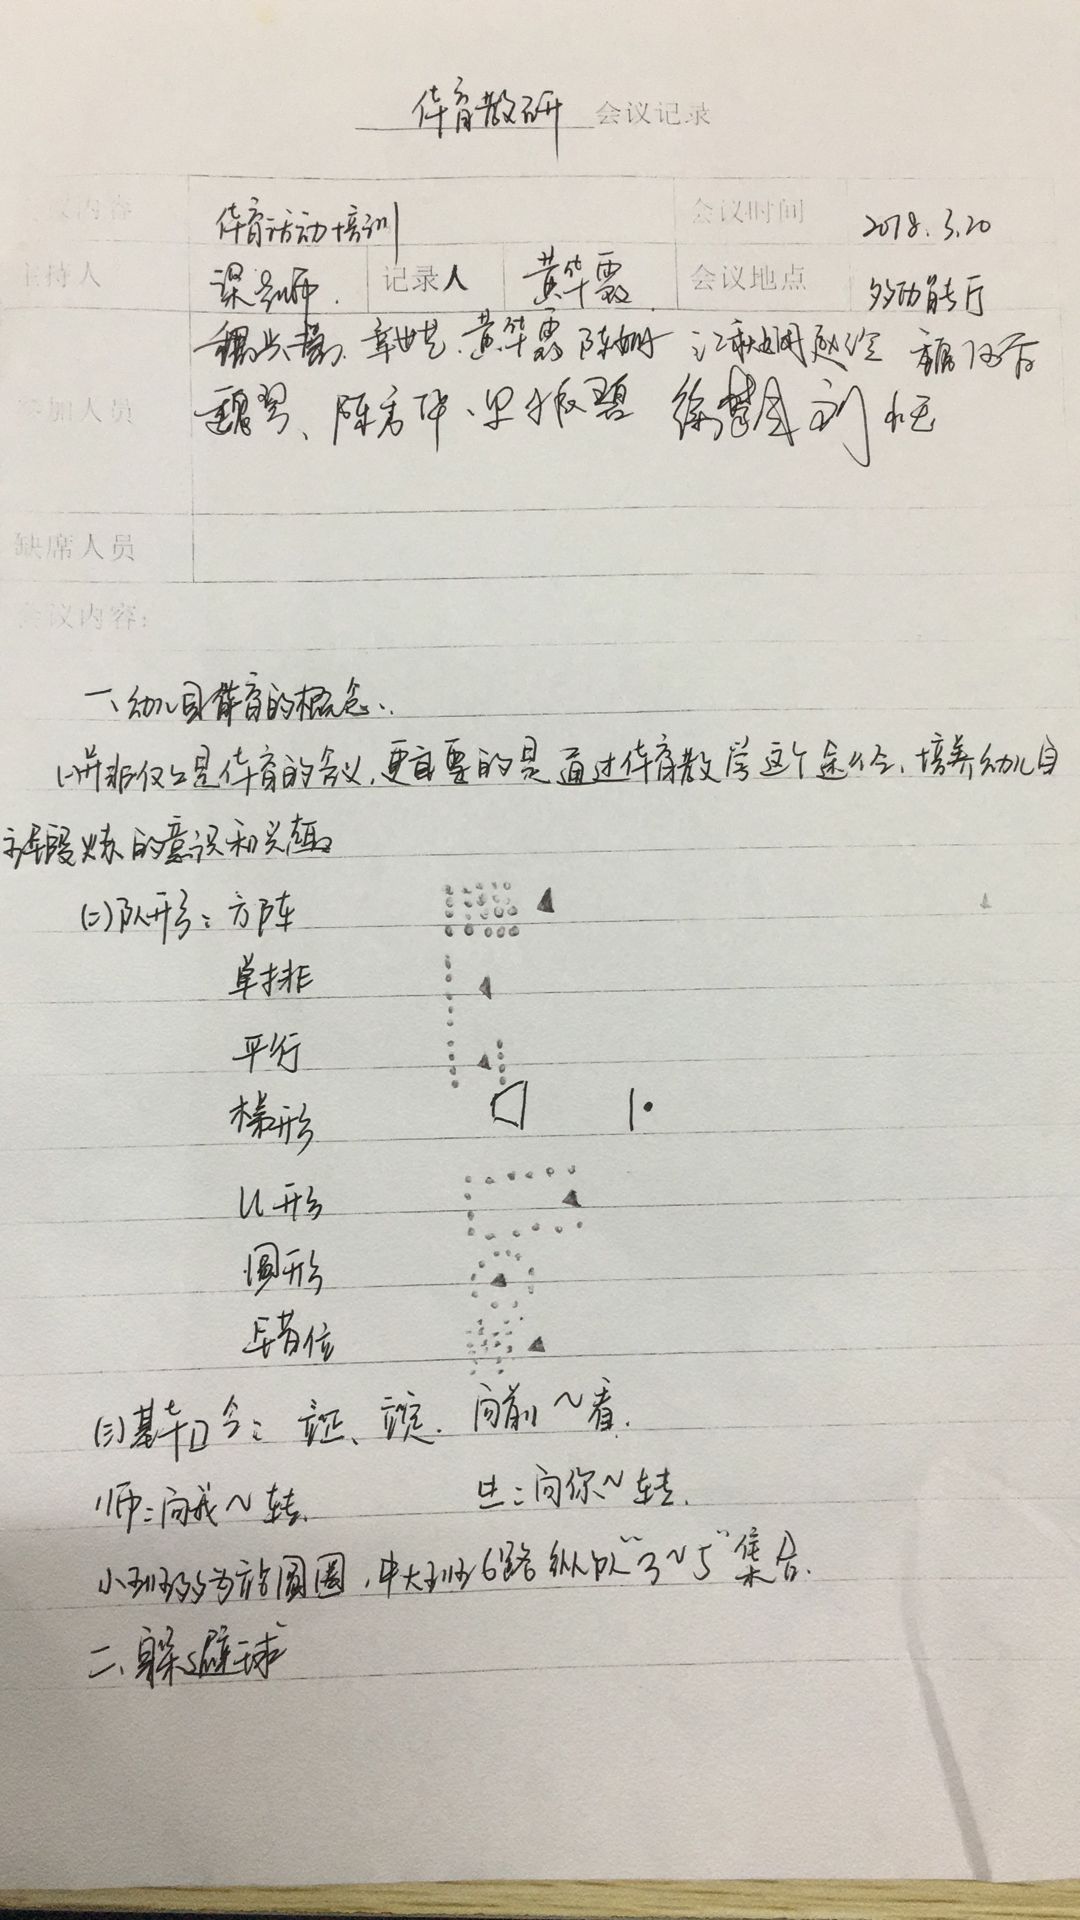 体育教研 会议记录
会议内容 体育活动培训 会议时间 2018.3.20
主持人 梁老师. 记录人 黄华霞 会议地点 多功能厅
黄华霞 陈 江 赵
参加人员 魏 、陈 、 碧 徐 刘
缺席人员
会议内容:
一、幼儿园体育的概念..
(一)并非仅仅是体育的含义,更重要的是通过体育教学这个途径、培养幼儿自
主锻炼的意识和兴趣
(二)队形: 方阵
单排
平行
梯形
U形
圆形
错位
(三)基本口令: 立正、 . 向前~看.
师:向我~转. 生:向你~转.
小班多为站圆圈,中大班6路纵队“3~5”集合.
二、躲避球